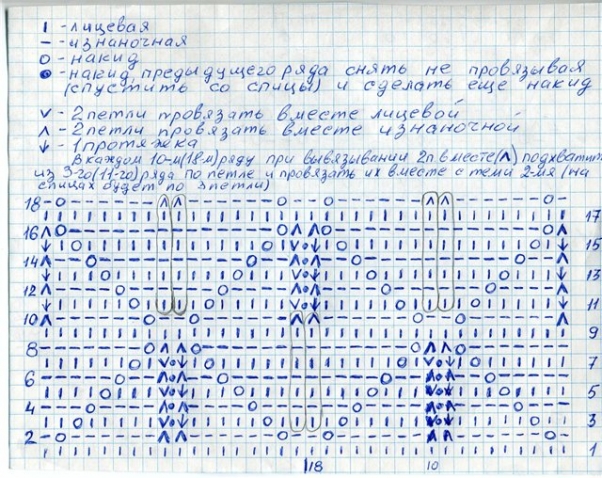 | - лицевая
— - изнаночная
○ - накид
● - накид предыдущего ряда снять не провязывая
(спустить со спицы) и сделать еще накид
∨ - 2 петли провязать вместе лицевой
∧ - 2 петли провязать вместе изнаночной
↓ - 1 протяжка
В каждом 10-м (18м) ряду при вывязывании 2п вместе (∧) подхватит
из 3-го (11-го) ряда по петле и провязать их вместе с теми 2-мя (на
спицах будет по 3 петли)
18
17
16
15
14
13
12
11
10
9
8
7
6
5
4
3
2
1
18 10